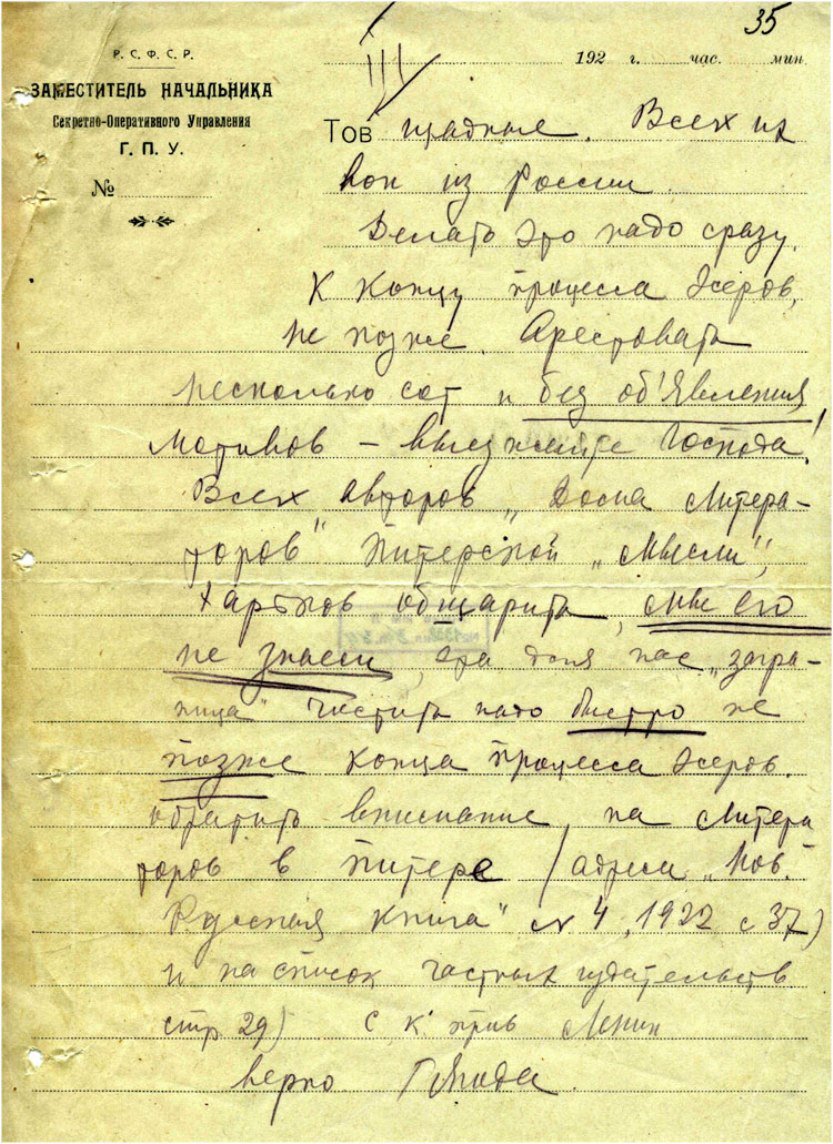 35
Р. С. Ф. С. Р.
ЗАМЕСТИТЕЛЬ НАЧАЛЬНИКА
Секретно-Оперативного Управления
Г. П. У.
№
192 г. час. мин.
Тов щадные. Всех их
вон из России.
Делать это надо сразу.
К концу процесса Эсеров,
не позже. Арестовать
несколько сот и без об'явления
мотивов – выезжайте господа!
Всех авторов „Дома Литера-
торов" Питерской „Мысли",
Харьков обшарить, мы его
не знаем, это для нас „загра-
ница" Чистить надо быстро не
позже конца процесса Эсеров.
обратить внимание на Литера
торов в Питере (адреса „Нов.
Русская Книга" № 4, 1922 с 37)
и на список частных издательств
стр 29) С к. прив Ленин
верно Г Ягода.